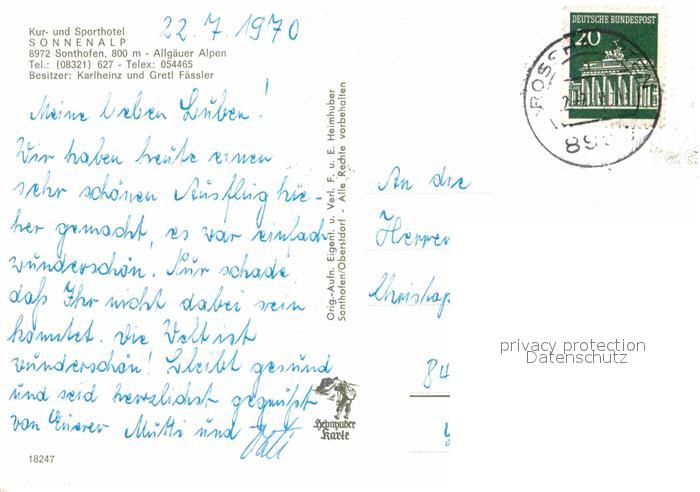 22.7.1970
Kur- und Sporthotel
SONNENALP
8972 Sonthofen, 800 m - Allgäuer Alpen
Tel.: (08321) 627 - Telex: 054465
Besitzer: Karlheinz und Gretl Fässler
Meine lieben Buben!
Wir haben heute einen
sehr schönen Ausflug hie-
her gemacht, es war einfach
wunderschön. Nur schade
daß Ihr nicht dabei sein
konntet. Die Welt ist
wunderschön! Bleibt gesund
und seid herzlichst gegrüßt
von Euerer Mutti und Vati
18247
Orig.-Aufn. Eigent. u. Verl. F. u. E. Heimhuber
Sonthofen/Oberstdorf - Alle Rechte vorbehalten
Heimhuber
Karte
DEUTSCHE BUNDESPOST
20
An die
Herren
84
privacy protection
Datenschutz